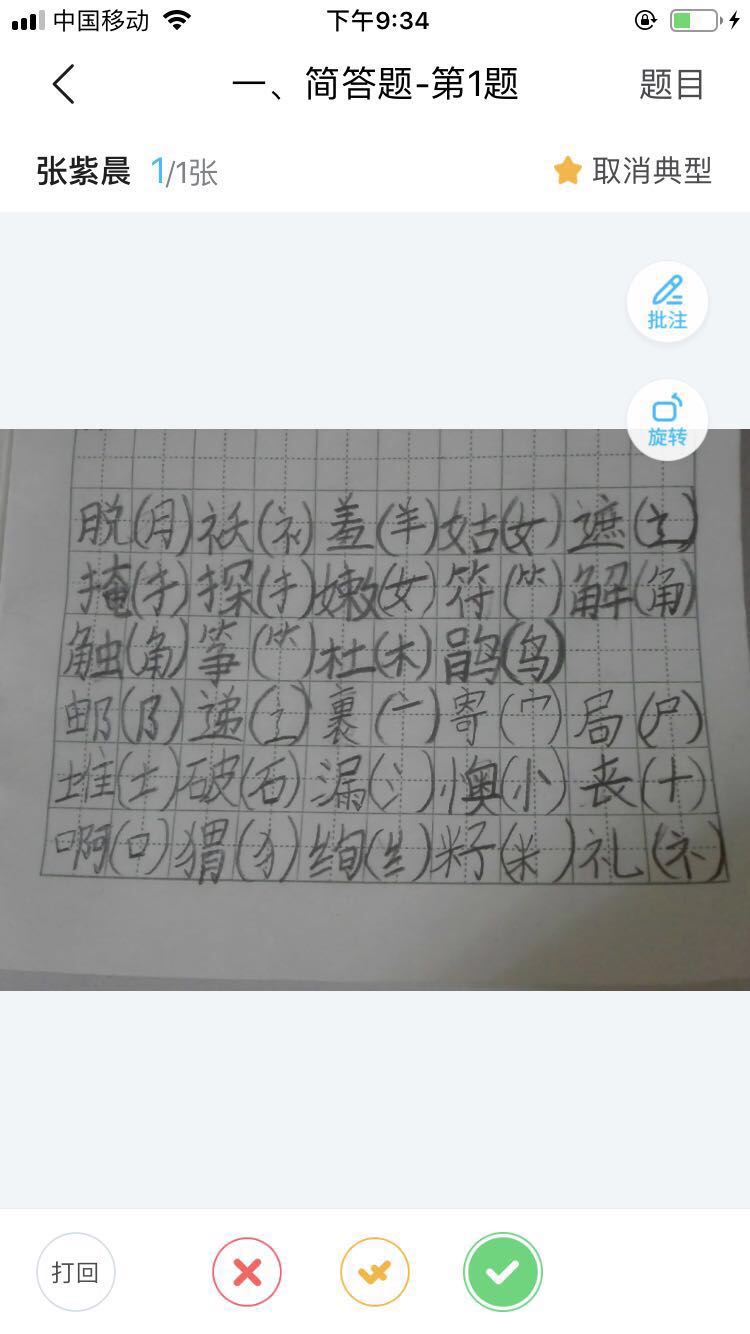 中国移动 下午9:34
一、简答题-第1题 题目
张紫晨 1/1张 取消典型
批注
旋转
脱(月)袄(衤)羞(羊)姑(女)遮(辶)
掩(扌)探(扌)嫩(女)符(⺮)解(角)
触(角)筝(⺮)杜(木)鹃(鸟)
邮(阝)递(辶)裹(亠)寄(宀)局(尸)
堆(土)破(石)漏(氵)懊(忄)丧(十)
啊(口)猬(犭)绚(纟)籽(米)礼(礻)
打回